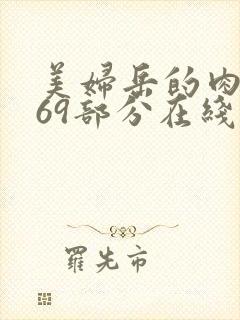 美婦岳的肉
69部分在綫
羅先市